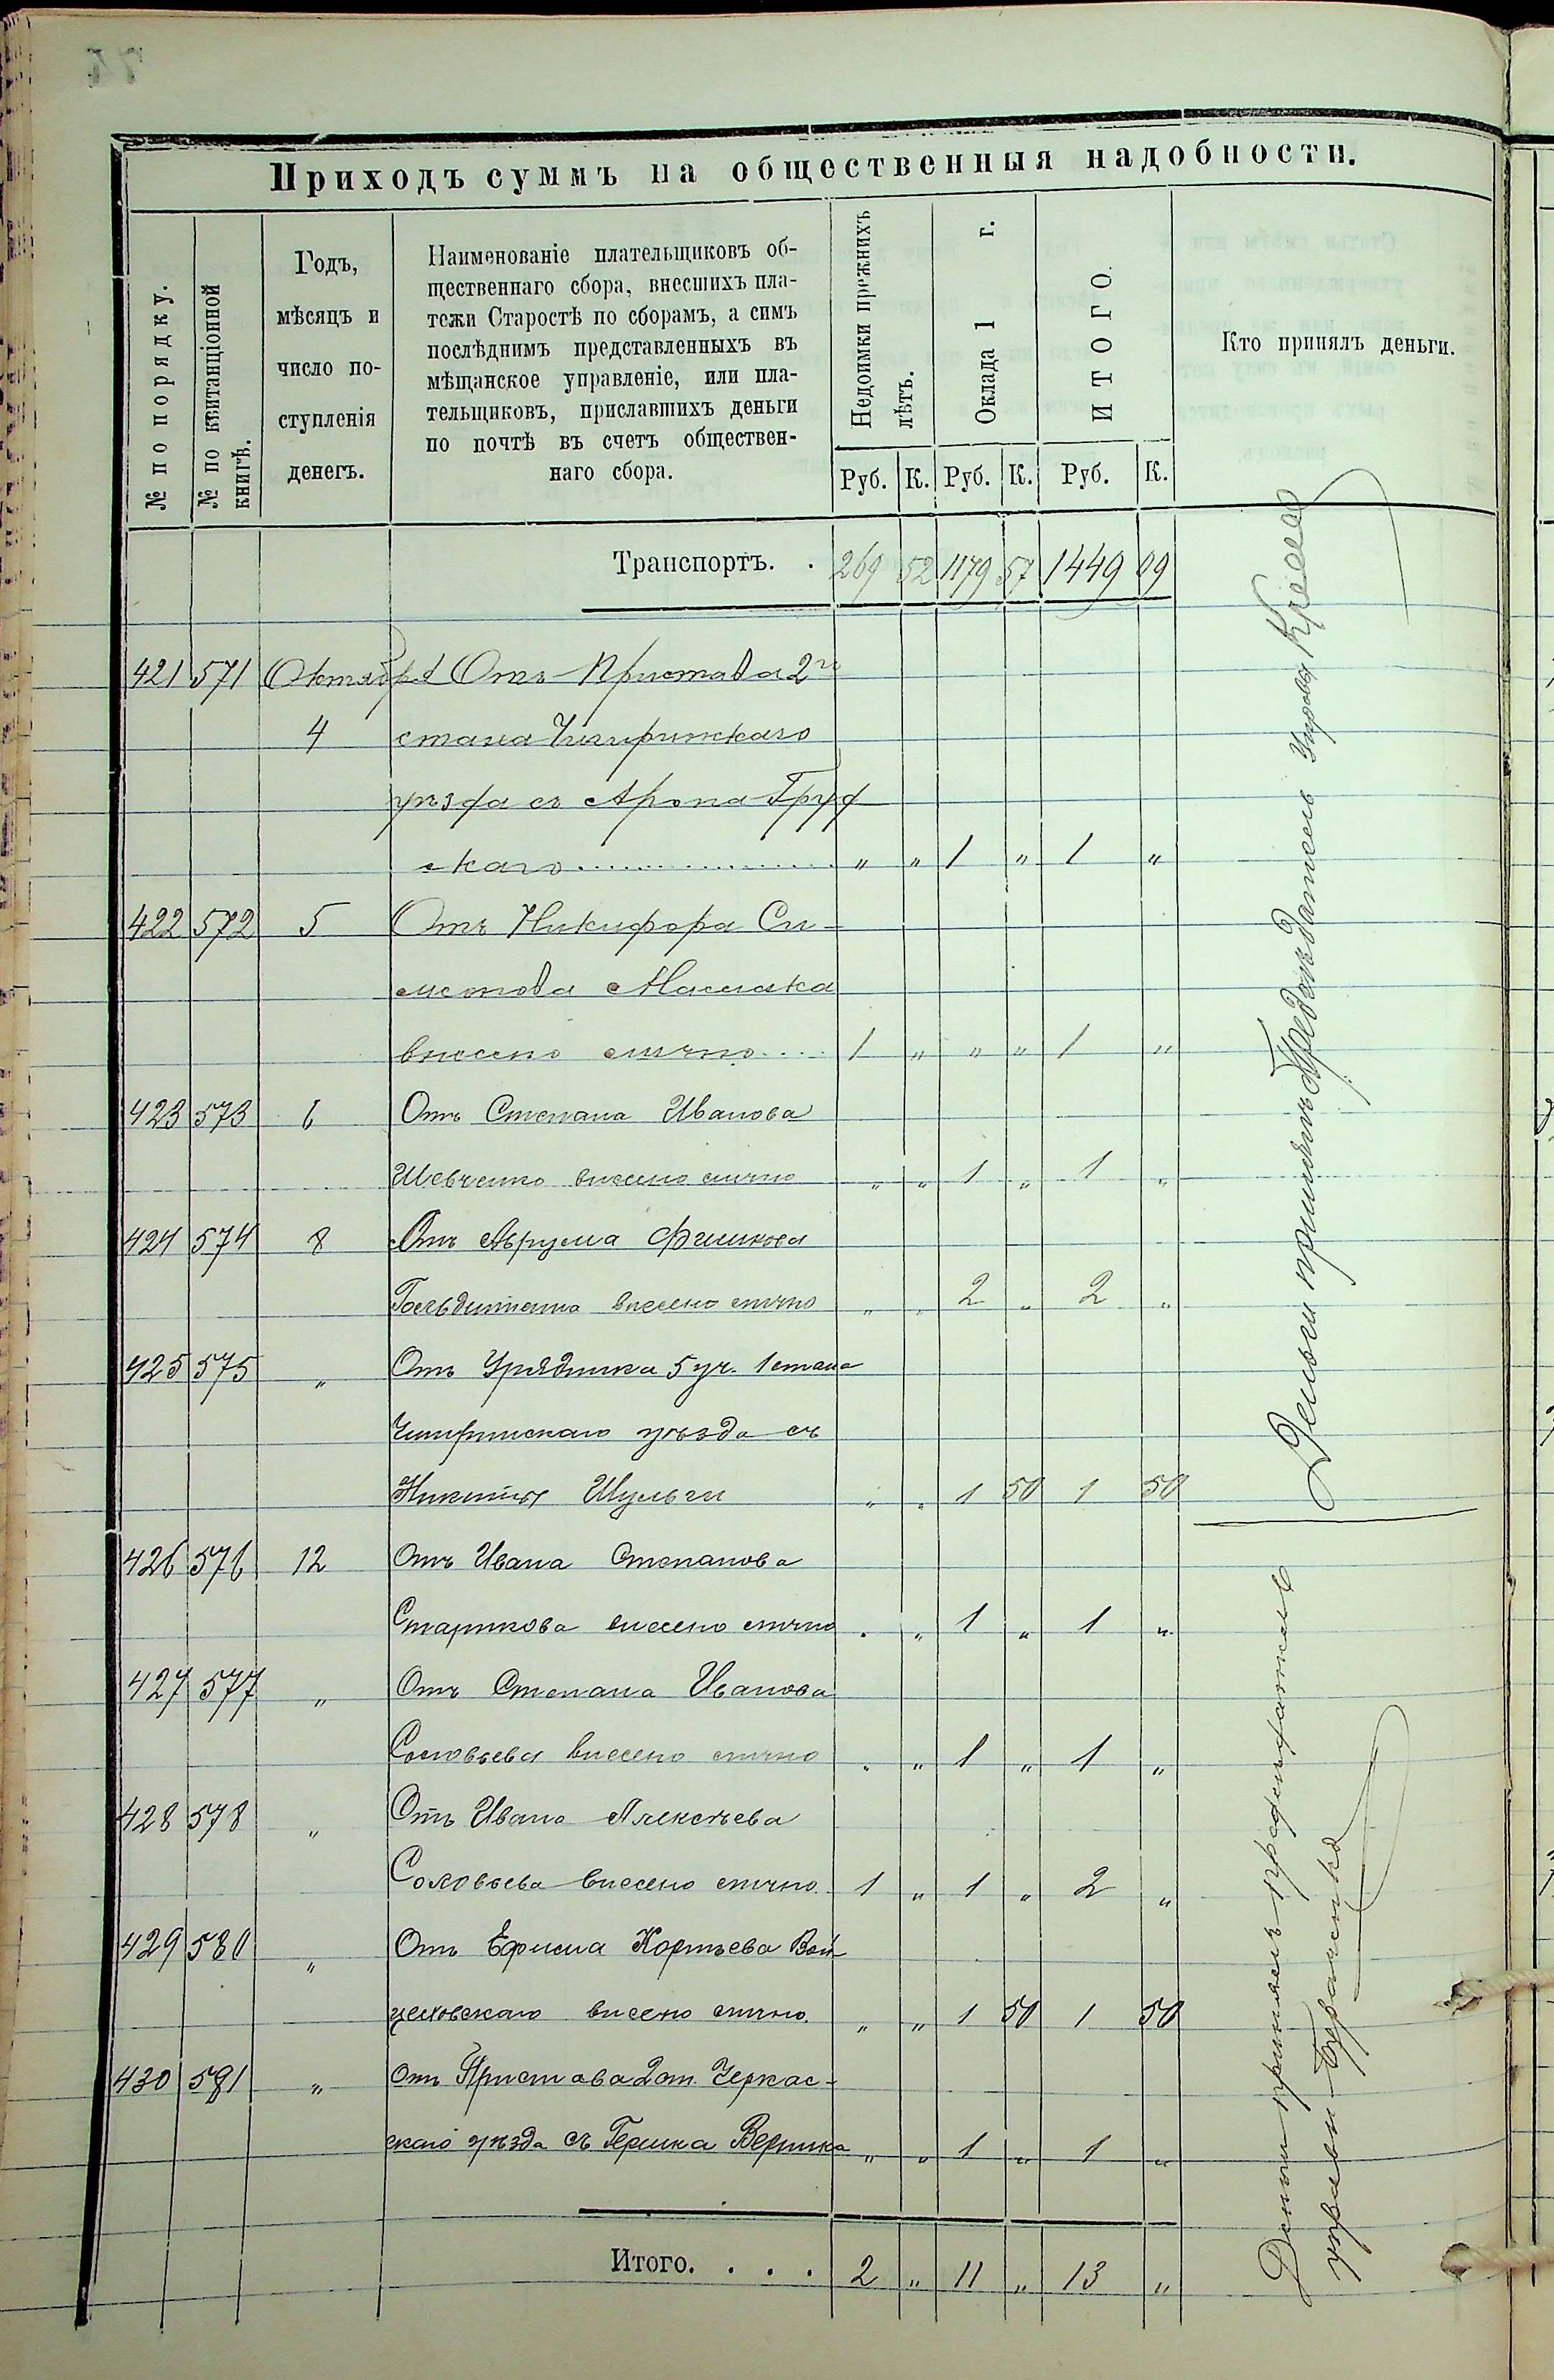 Приходъ суммъ на общественныя надобности.
№ по порядку.
№ по квитанціонной книгѣ.
Годъ,
мѣсяцъ и
число по-
ступленія
денегъ.
Наименованіе плательщиковъ об-
щественнаго сбора, внесшихъ пла-
тежи Старостѣ по сборамъ, а симъ
послѣднимъ представленныхъ въ
мѣщанское управленіе, или пла-
тельщиковъ, приславшихъ деньги
по почтѣ въ счетъ обществен-
наго сбора.
Недоимки прежнихъ лѣтъ.
Оклада 1 г.
ИТОГО.
Кто принялъ деньги.
Руб. К. Руб. К. Руб. К.
Транспортъ. . 269 52 1179 57 1449 09
421 571 Октября Отъ Пристава 2го
4 стана Чигиринскаго
уѣзда съ Арона Груд
скаго " " 1 " 1 "
422 572 5 Отъ Никифора Си-
внесено лично 1 " " " 1 "
423 573 6 Отъ Степана Иванова
Шевченко внесено лично " " 1 " 1 "
424 574 8 Отъ Аврума Фишкова
Гольдштейна внесено лично " " 2 " 2 "
425 575 " Отъ Урядника 5 уч. 1 стана
Чигиринскаго уѣзда съ
Никиты Шульги " " 1 50 1 50
426 576 12 Отъ Ивана Степанова
Старикова внесено лично " " 1 " 1 "
427 577 " Отъ Степана Иванова
Соловьева внесено лично " " 1 " 1 "
428 578 " Отъ Ивана Алексѣева
Соловьева внесено лично 1 " 1 " 2 "
429 580 " Отъ Ефима Корнѣева Вой-
цеховскаго внесено лично. " " 1 50 1 50
430 581 " Отъ Пристава 2 ст. Черкас-
скаго уѣзда съ Гершка " " 1 " 1 "
Итого. . . . 2 " 11 " 13 "
Деньги принялъ Предсѣдатель Управы
Деньги принялъ предсѣдатель
управы